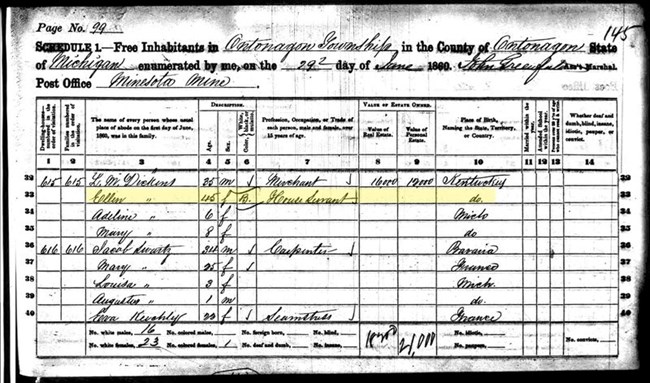 Page No. 99
145
SCHEDULE 1.—Free Inhabitants in Ontonagon Township in the County of Ontonagon State
of Michigan enumerated by me, on the 29th day of June 1860. John Greenfield Ass't Marshal.
Post Office Minesota Mine
Dwelling-houses numbered in the order of visitation.
Families numbered in the order of visitation.
The name of every person whose usual place of abode on the first day of June, 1860, was in this family.
DESCRIPTION.
Age.
Sex.
Color,
Profession, Occupation, or Trade of each person, male and female, over 15 years of age.
VALUE OF ESTATE OWNED.
Value of Real Estate.
Value of Personal Estate.
Place of Birth, Naming the State, Territory, or Country.
Married within the year.
Attended School within the year.
Whether deaf and dumb, blind, insane, idiotic, pauper, or convict.
1 2 3 4 5 6 7 8 9 10 11 12 13 14
615 615 L. W. Dickens 25 m Merchant 16000 12000 Kentuckey
33 Ellen " 45 f B. House Servant do. 33
34 Adeline " 6 f Mich
35 Mary " 8 f do 35
36 616 616 Jacob Swartz 34 m Carpenter Bavaria 36
37 Mary " 25 f France 37
38 Louisa " 3 f Mich. 38
39 Augustus " 1 m do. 39
40 Eva Keichly 22 f Seamstress France 40
No. white males, 16 No. colored males, No. foreign born, No. blind, No. idiotic, No. convicts,
No. white females, 23 No. colored females, 1 No. deaf and dumb, No. insane, 21,000 No. paupers,